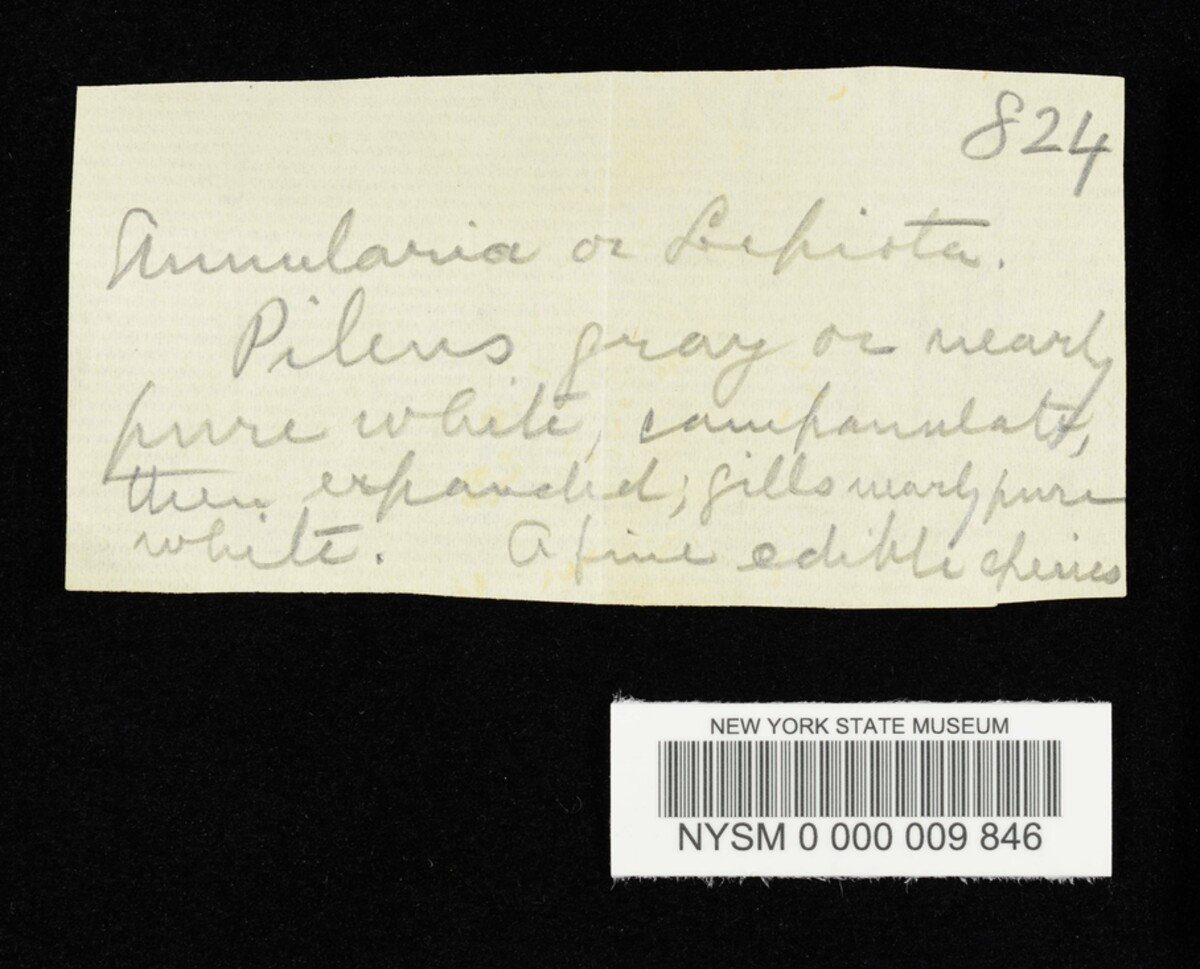 824
Annularia or Lepiota.
Pileus gray or nearly
pure white, campanulate,
then expanded; gills nearly pure
white. A fine edible species
NEW YORK STATE MUSEUM
NYSM 0 000 009 846